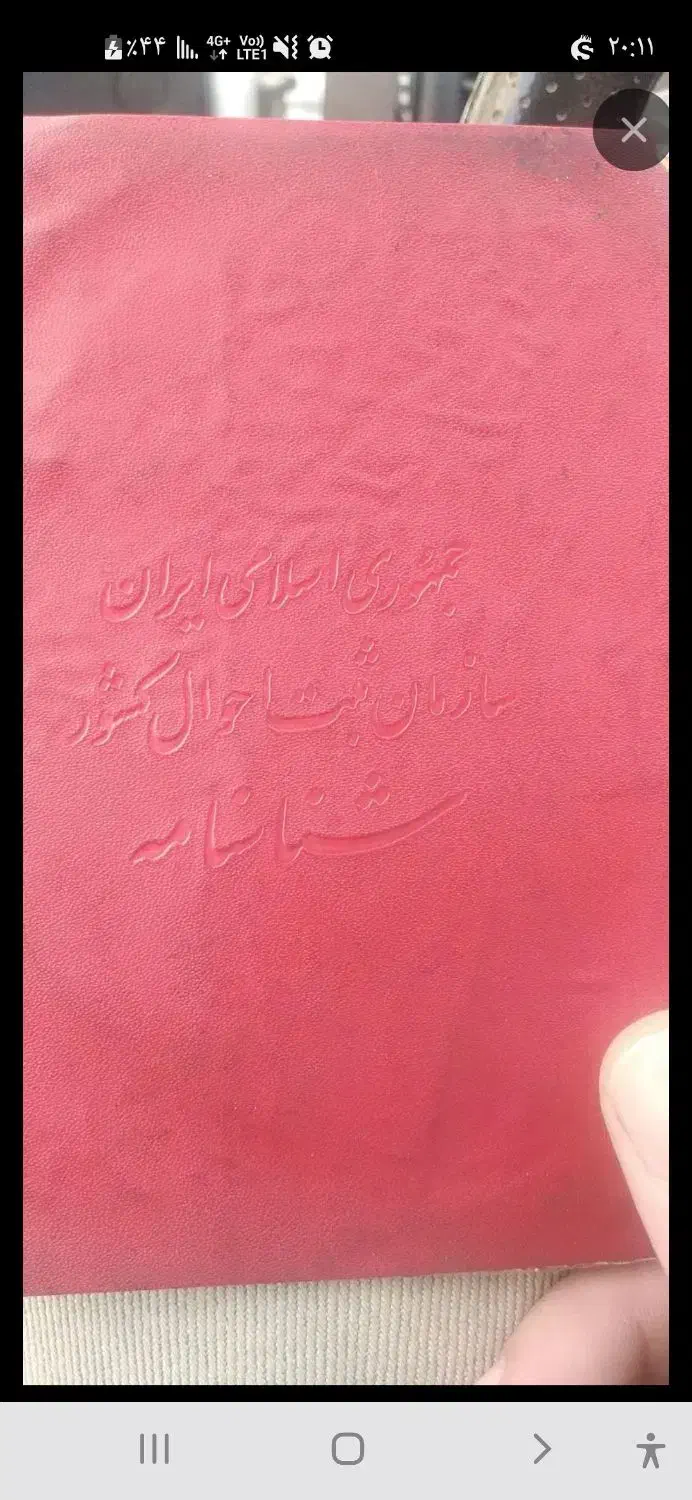 ٪۴۴ 4G+ Vo)) LTE1 ۲۰:۱۱
جمهوری اسلامی ایران
سازمان ثبت احوال کشور
شناسنامه